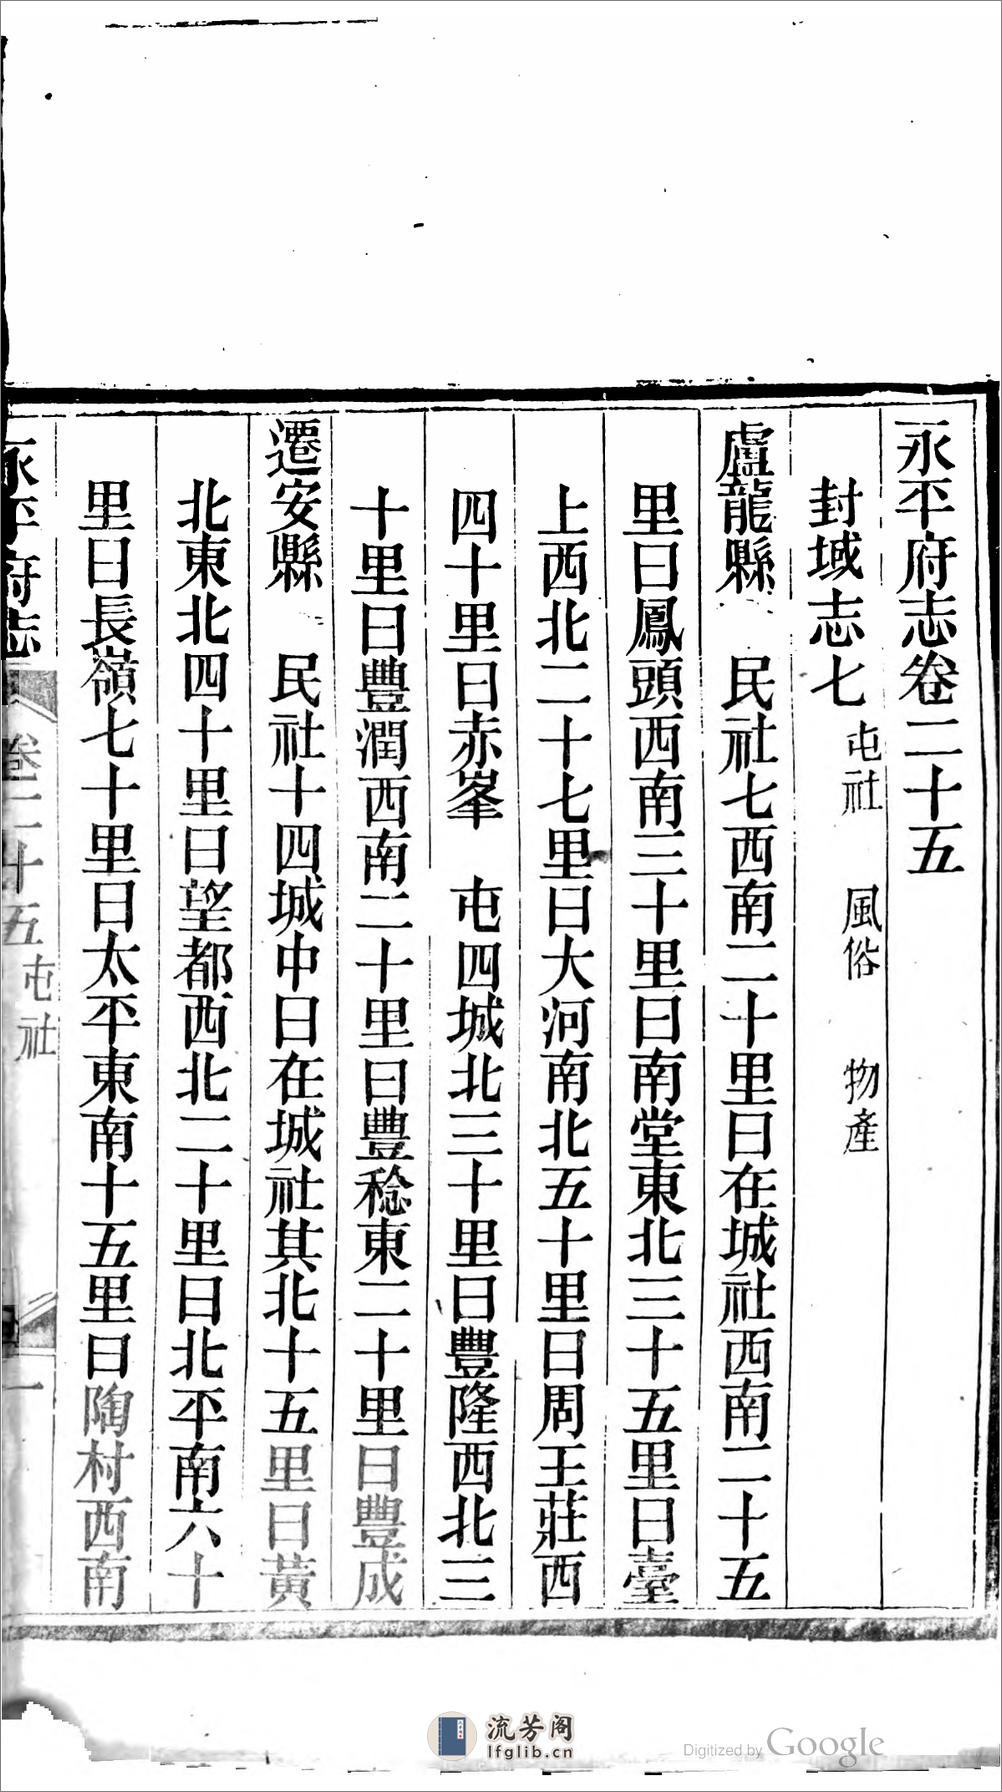 永平府志卷二十五
封域志七 屯社 風俗 物產
盧龍縣 民社七西南二十里曰在城社西南二十五
里曰鳳頭西南三十里曰南堂東北三十五里曰臺
上西北二十七里曰大河南北五十里曰周王莊西
四十里曰赤峯 屯四城北三十里曰豐隆西北三
十里曰豐潤西南二十里曰豐稔東二十里曰豐成
遷安縣 民社十四城中曰在城社其北十五里曰黃
北東北四十里曰望都西北二十里曰北平南六十
里曰長嶺七十里曰太平東南十五里曰陶村西南
永平府志 卷二十五屯社 一
流芳阁
lfglib.cn
Digitized by Google